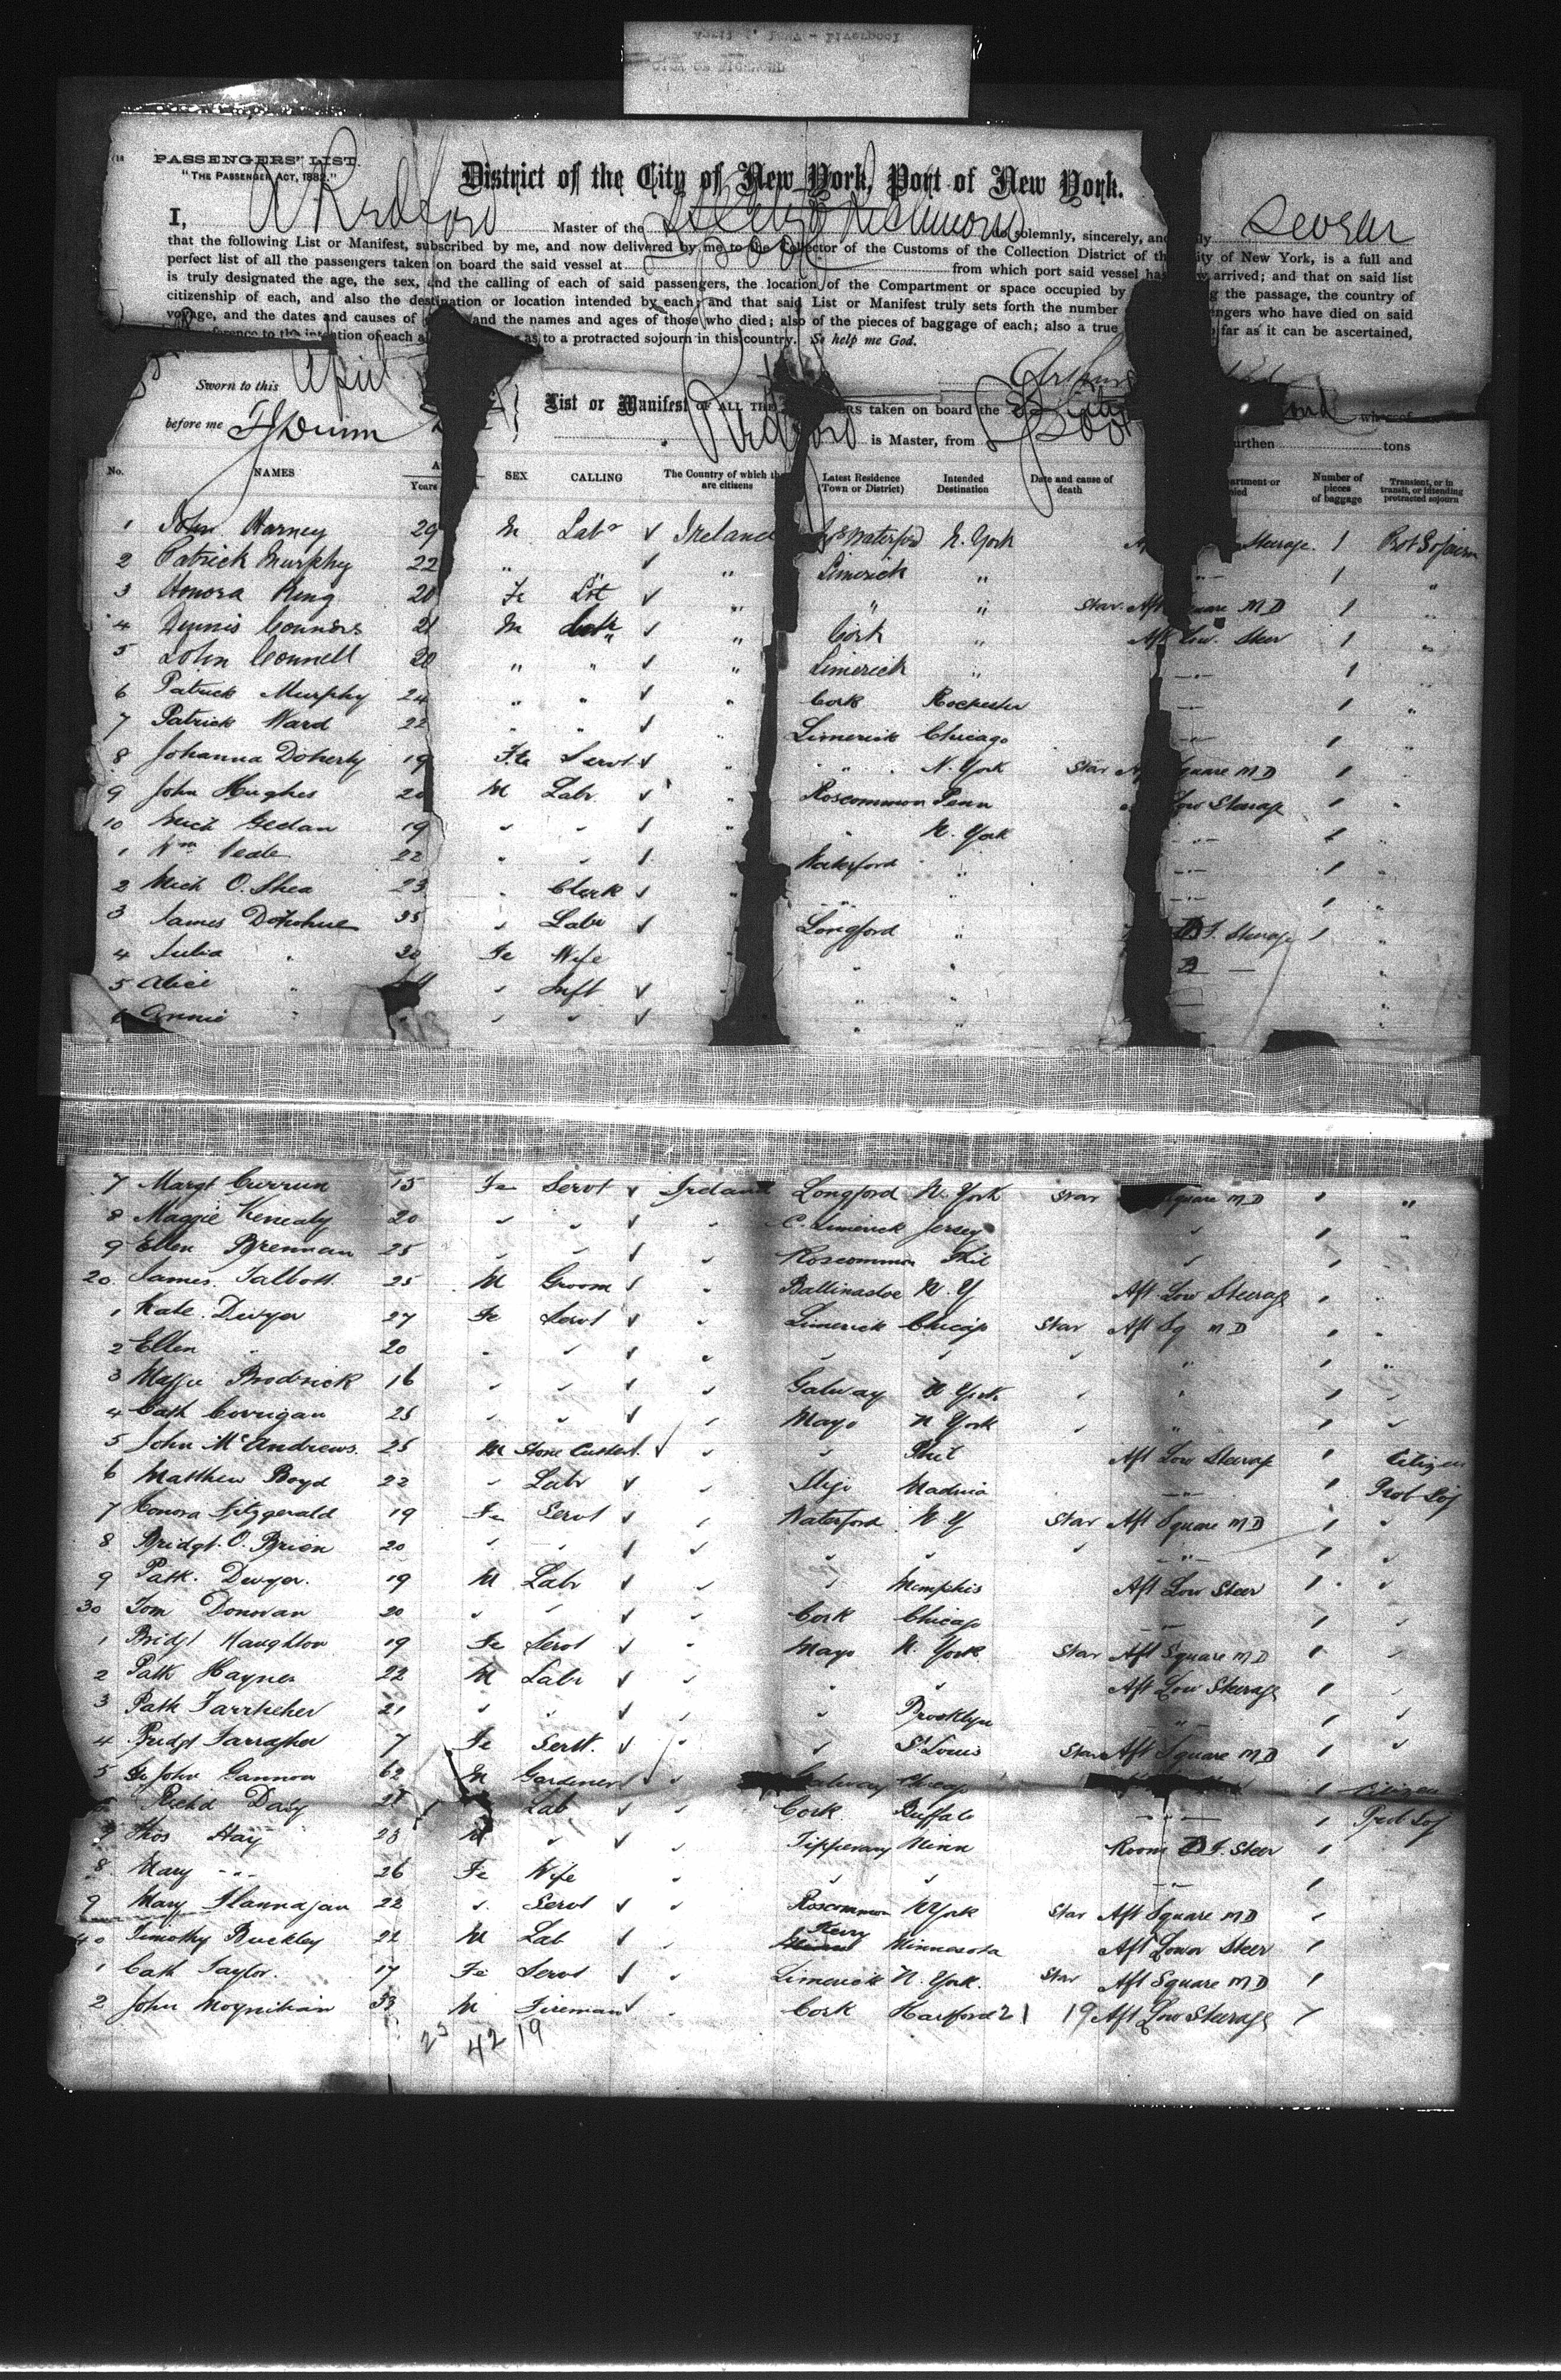 PASSENGERS' LIST.
"THE PASSENGER ACT, 1882."
District of the City of New York, Port of New York.
I, A Redford Master of the SS City of Richmond do solemnly, sincerely, and swear
that the following List or Manifest, subscribed by me, and now delivered by me to the Collector of the Customs of the Collection District of the City of New York, is a full and
perfect list of all the passengers taken on board the said vessel at L'pool from which port said vessel has now arrived; and that on said list
is truly designated the age, the sex, and the calling of each of said passengers, the location of the Compartment or space occupied by the passage, the country of
citizenship of each, and also the destination or location intended by each; and that said List or Manifest truly sets forth the number who have died on said
voyage, and the dates and causes of and the names and ages of those who died; also of the pieces of baggage of each; also a true far as it can be ascertained,
to the intention of each as to a protracted sojourn in this country. So help me God.
Sworn to this April Arthur
List or Manifest OF ALL THE taken on board the SS City
before me Redford is Master, from L'pool tons
No. NAMES Years SEX CALLING The Country of which they are citizens Latest Residence (Town or District) Intended Destination Date and cause of death Number of pieces of baggage Transient, or in transit, or intending protracted sojourn
1 John Harney 29 M Labr ✓ Ireland Waterford N. York Steerage 1
2 Patrick Murphy 22 " " ✓ " Limerick " 1 "
3 Honora Ring 20 Fe ✓ " " " Star. Aft Square M D 1 "
4 Dennis Connors 21 M ✓ " Cork " Aft Low. Steer 1 "
5 John Connell 20 " " ✓ " Limerick " 1 "
6 Patrick Murphy 24 " " ✓ " Cork Rochester 1 "
7 Patrick Ward 22 " " ✓ " Limerick Chicago 1 "
8 Johanna Doherty 19 Fe Servt ✓ " " N. York Star Square M D 1 "
9 John Hughes 20 M Labr ✓ " Roscommon Penn Low Steerage 1 "
10 Mich Gedan 19 " " ✓ " " N. York 1
1 Wm Veale 22 " " ✓ Waterford " 1
2 Mich O. Shea 23 " Clerk ✓ " " 1
3 James Donohue 35 " Labr ✓ Longford " Steerage 1 "
4 Julia " 30 Fe Wife " " "
5 Alice " " Inft ✓ " " "
6 Annie " " " ✓ " " "
7 Margt Curren 15 Fe Servt ✓ Ireland Longford N. York Star Square M D 1 "
8 Maggie Kenealy 20 " " ✓ " C. Limerick Jersey " 1 "
9 Ellen Brennan 25 " " ✓ Roscommon Phil " 1 "
20 James Talbott 25 M Groom ✓ " Ballinasloe N. Y Aft Low Steerage 1 "
1 Kate Dwyer 27 Fe Servt ✓ " Limerick Chicago Star Aft Sq M D 1 "
2 Ellen " 20 " " ✓ " " " " " 1 "
3 Maggie Brodrick 16 " " ✓ " Galway N York " " 1 "
4 Cath Corrigan 25 " " ✓ " Mayo N York " " 1 "
5 John McAndrews 25 M Stone Cutter ✓ " " Phil Aft Low Steerage 1 Citizen
6 Matthew Boyd 22 " Labr ✓ " Sligo 1 Prot Soj
7 Honora Fitzgerald 19 Fe Servt ✓ " Waterford N. Y Star Aft Square M D 1 "
8 Bridgt. O. Brien 20 " " ✓ " " " " " 1 "
9 Patk. Dwyer 19 M Labr ✓ " " Memphis Aft Low Steer 1 "
30 Tom Donovan 20 " " ✓ " Cork Chicago " 1 "
1 Bridgt Naughton 19 Fe Servt ✓ " Mayo N. York Star Aft Square M D 1 "
2 Patk Haynes 22 M Labr ✓ " " " Aft Low Steerage 1 "
3 Patk 21 " " ✓ " " Brooklyn " 1 "
4 Bridgt Farragher 7 Fe Servt. ✓ " " St Louis Star Aft Square M D 1 "
5 John Gannon 62 M Gardener ✓ " Galway Chicago 1 Citizen
Richd Daly Lab ✓ " Cork Buffalo " 1 Prot Soj
Thos Hay 28 M " ✓ " Tipperary Minn Room D F. Steer 1
8 Mary " 26 Fe Wife " " " " 1
9 Mary Flannagan 22 " Servt ✓ " Roscommon N York Star Aft Square M D 1
40 Timothy Buckley 22 M Lab ✓ " Kerry Minnesota Aft Lower Steer 1
1 Cath Taylor 17 Fe Servt ✓ " Limerick N. York Star Aft Square M D 1
2 John Moynihan 33 M Fireman ✓ " Cork Hartford 21 19 Aft Low Steerage 1
23 42 19